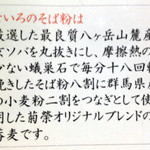 せいろのそば粉は
厳選した最良質八ヶ岳山麓産
玄ソバを丸抜きにし、摩擦熱の
少ない蟻巣石で毎分十八回転
挽きしたそば粉八割に群馬県産
の小麦粉二割をつなぎとして使
用した菊祭オリジナルブレンドの
蕎麦です。